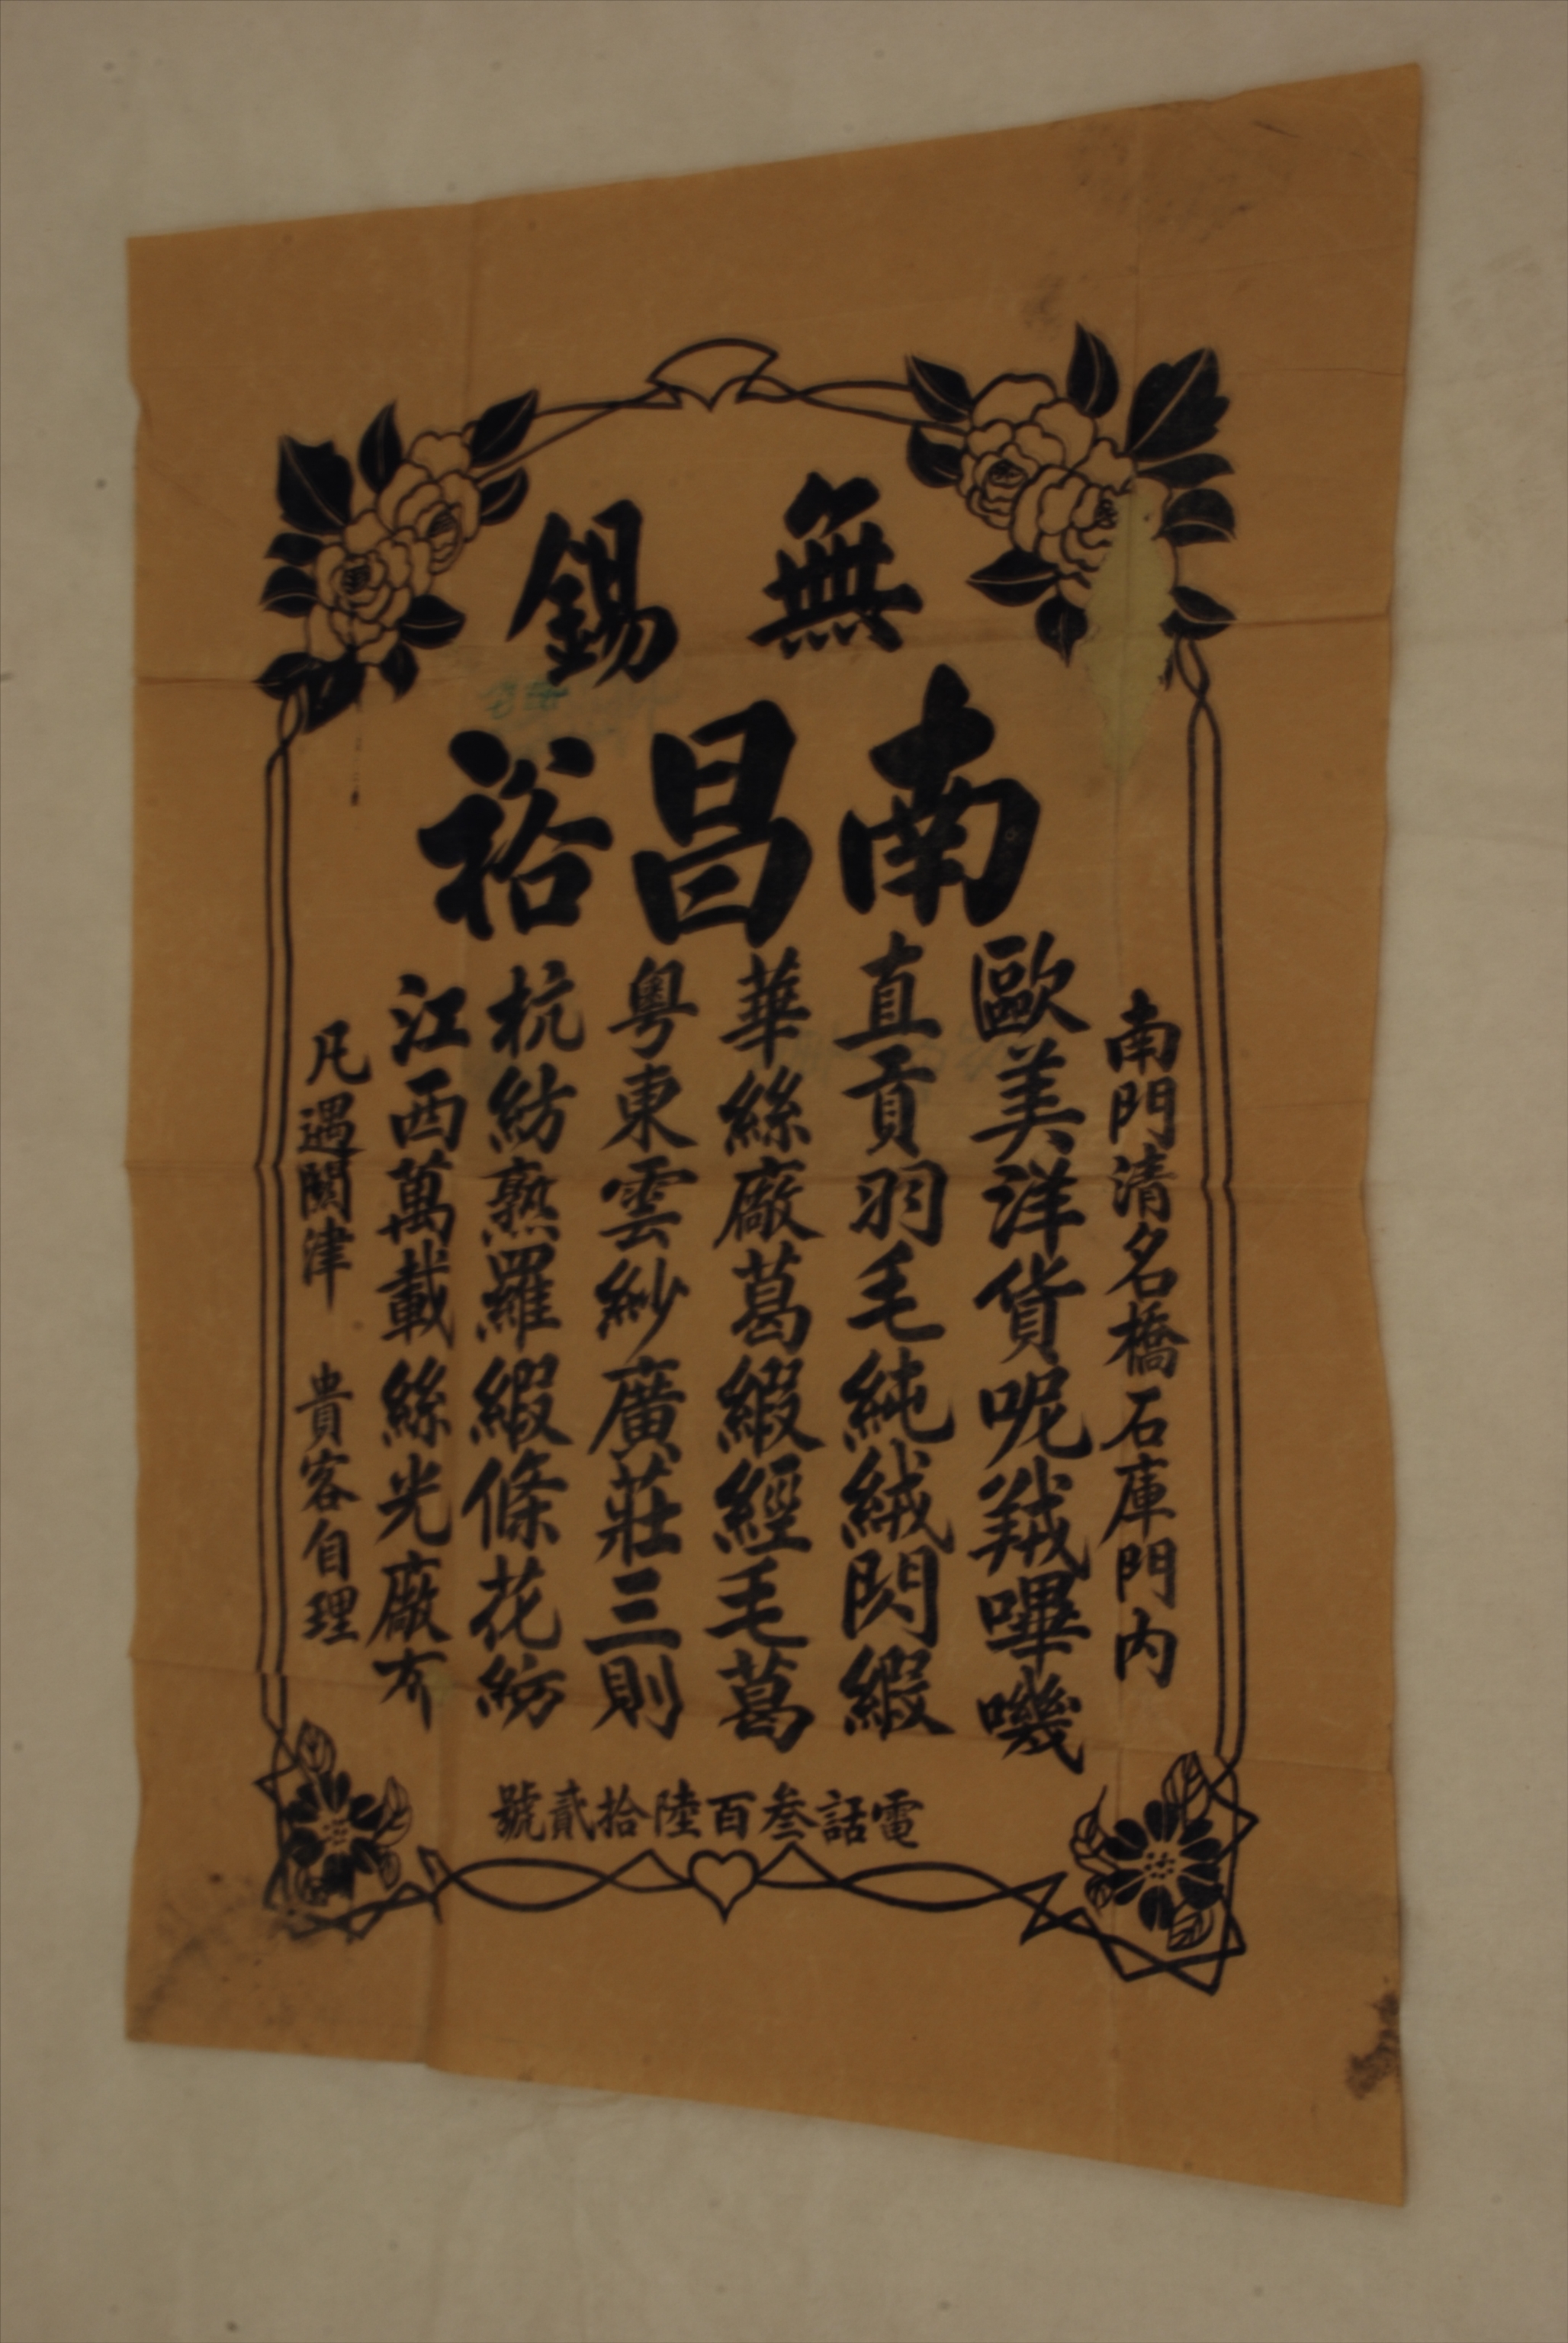 無錫
南昌裕
南門清名橋石庫門內
歐美洋貨呢羢嗶嘰
直貢羽毛純絨閃緞
華絲廠葛緞經毛葛
粵東雲紗廣莊三則
杭紡熟羅緞條花紡
江西萬載絲光廠布
凡遇關津 貴客自理
電話叁百陸拾貳號